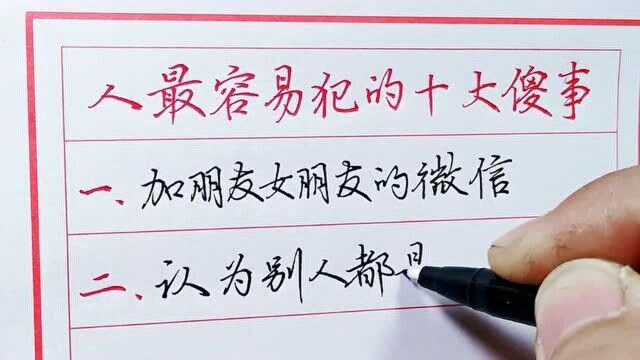 人最容易犯的十大傻事
一、加朋友女朋友的微信
二、认为别人都